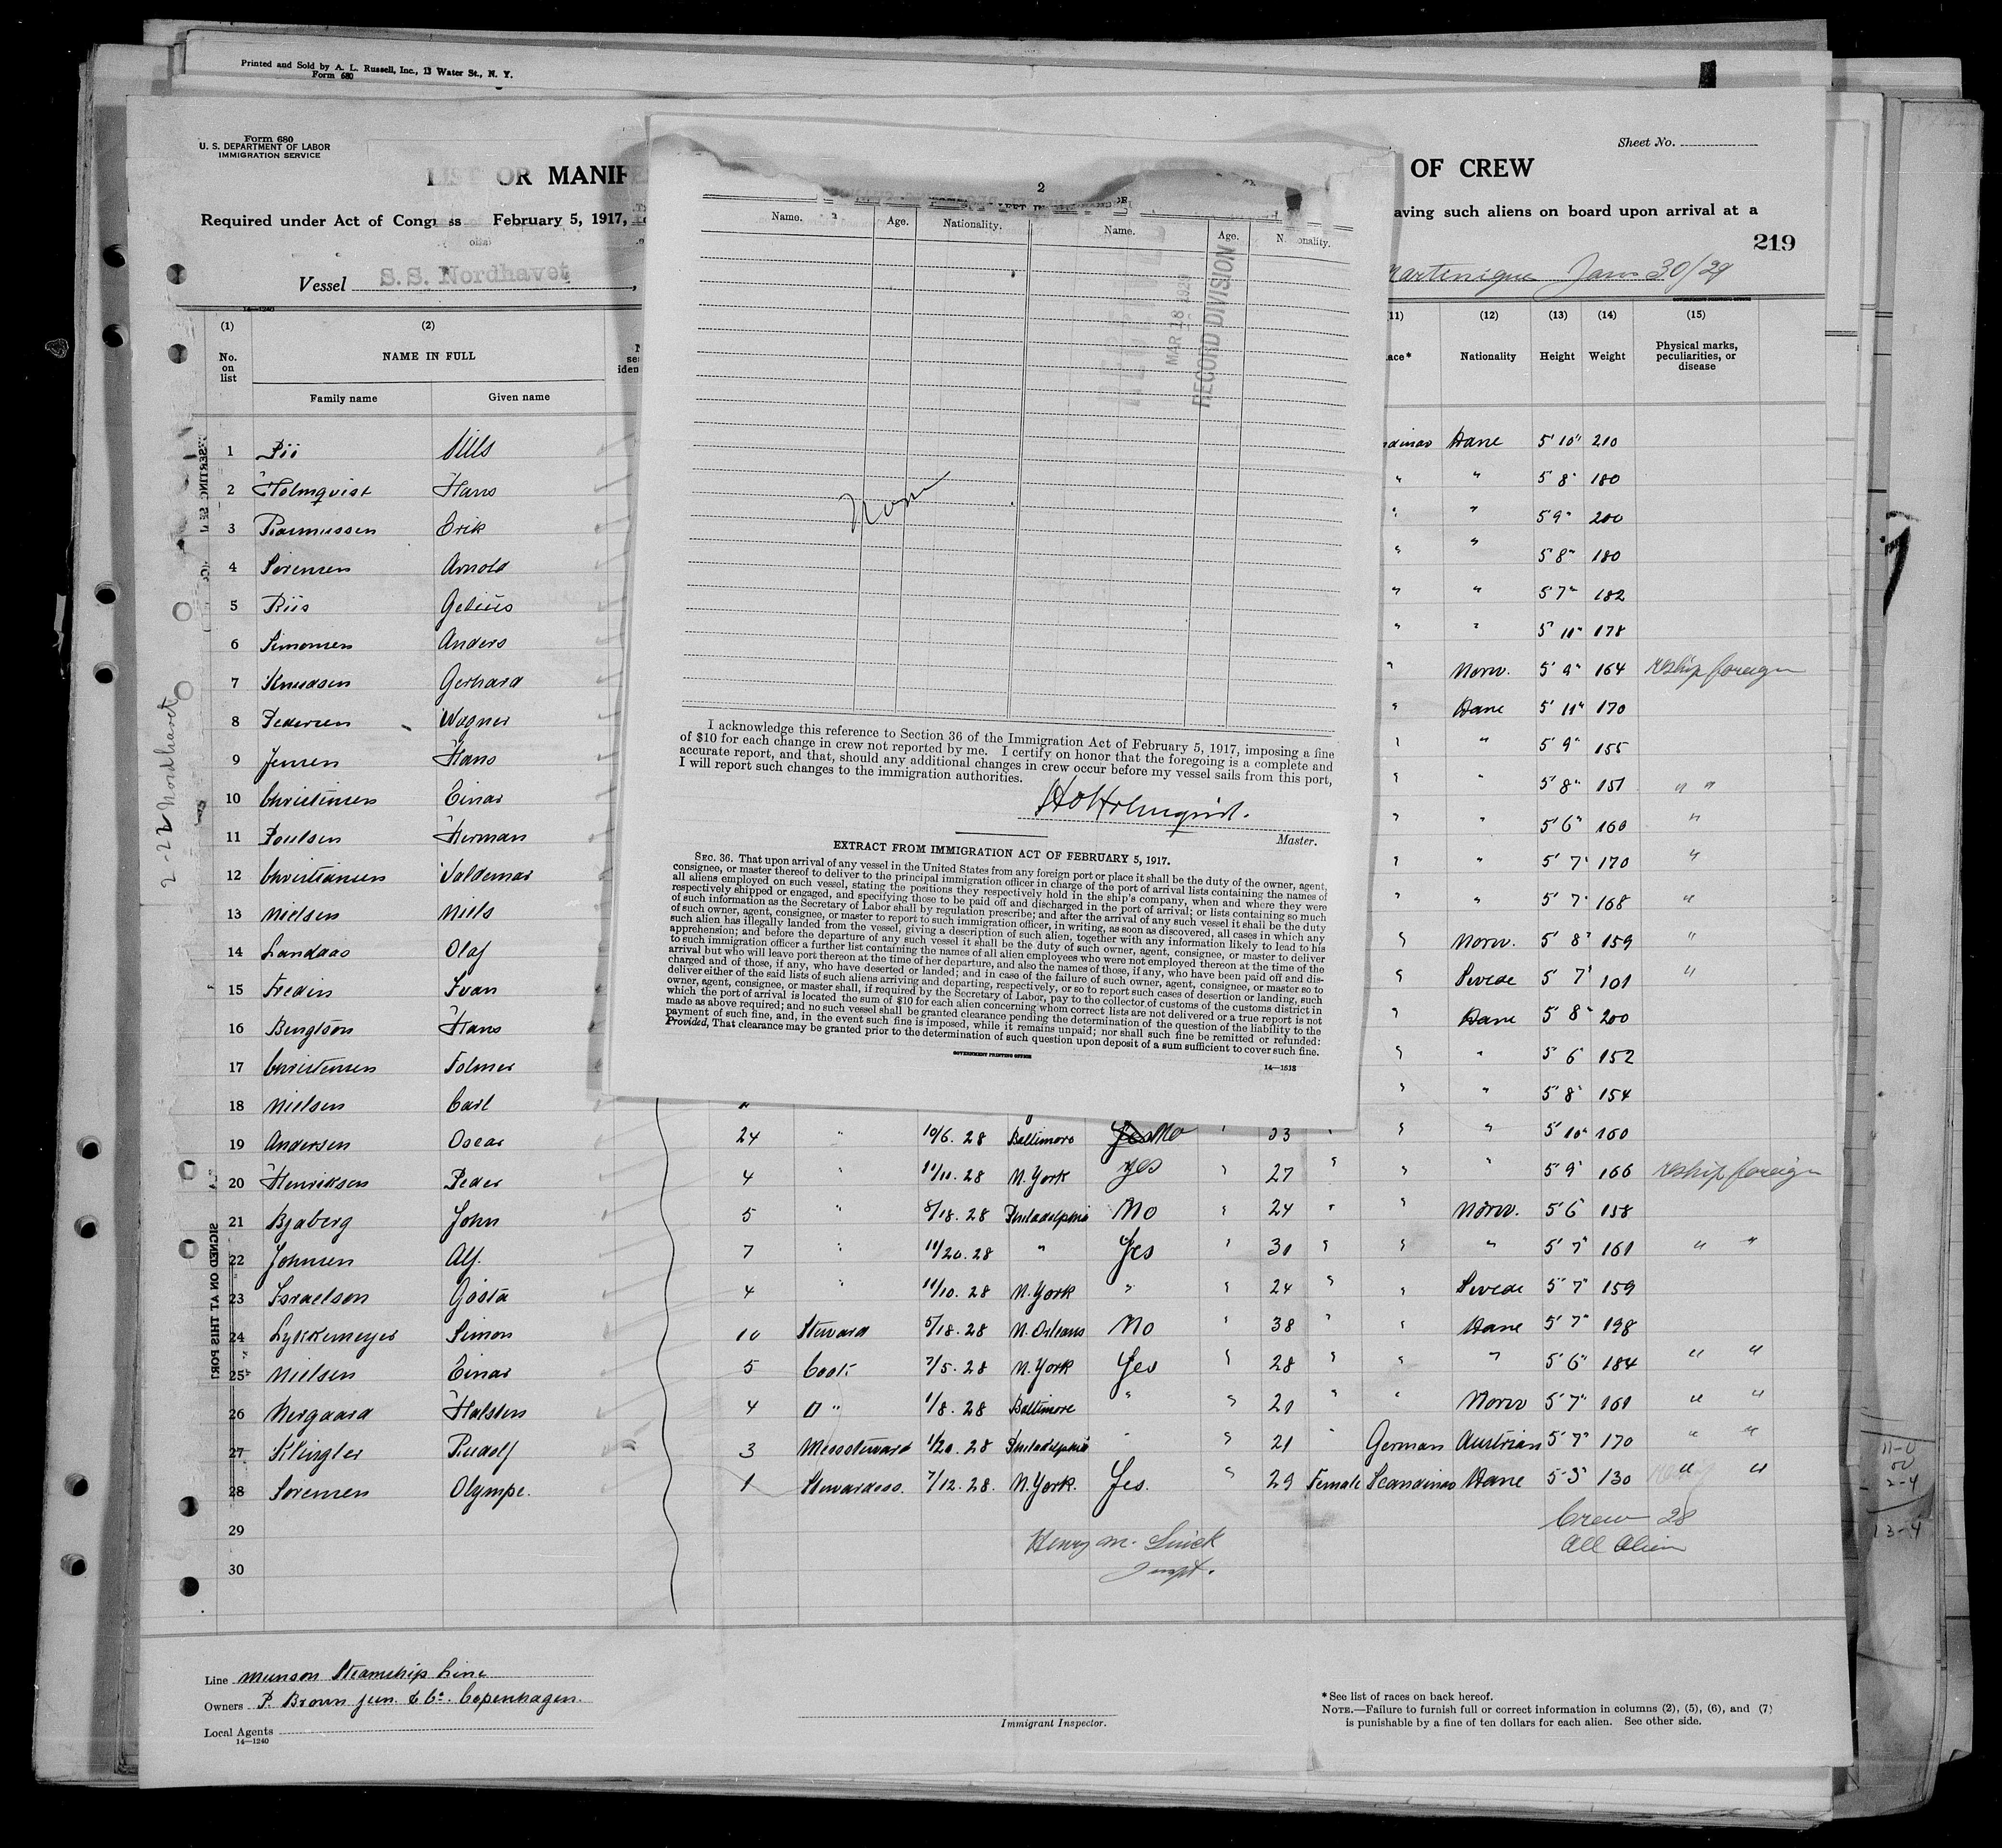 Printed and Sold by A. L. Russell, Inc., 13 Water St., N. Y.
Form 680
Form 680
U. S. DEPARTMENT OF LABOR
IMMIGRATION SERVICE
Sheet No.
LIST OR MANIFE OF CREW
Required under Act of Congress February 5, 1917, aving such aliens on board upon arrival at a
219
Vessel S.S. Nordhavet, Martinique Jan 30/29
14—1240
(1) (2) (11) (12) (13) (14) (15)
No. on list NAME IN FULL Nationality Height Weight Physical marks, peculiarities, or disease
Family name Given name
1 Pii Nills Dane 5' 10" 210
2 Holmquist Hans " " 5' 8" 180
3 Rasmussen Erik " " 5' 9" 200
4 Sorensen Arnold " " 5' 8" 180
5 Riis Gelius " " 5' 7" 182
6 Simonsen Anders " " 5' 11" 178
7 Knudsen Gerhard " Norw. 5' 9" 164 reship foreign
8 Pedersen Wagner " Dane 5' 11" 170
9 Jensen Hans " " 5' 9" 155
10 Christensen Einar " " 5' 8" 151 " "
11 Poulsen Herman " " 5' 6" 160 "
12 Christiansen Valdemar " " 5' 7" 170 "
13 Nielsen Niels " " 5' 7" 168 "
14 Landaas Olaf " Norw. 5' 8" 159 "
15 Fredin Ivan " Swede 5' 7" 101 "
16 Bengtson Hans " Dane 5' 8" 200
17 Christensen Folmer " " 5' 6" 152
18 Nielsen Carl " " 5' 8" 154
19 Andersen Oscar 24 " 10/6. 28 Baltimore Yes No " 33 " " " 5' 10" 160
20 Henriksen Peder 4 " 11/11. 28 N. York Yes " 27 " " " 5' 9" 166 reship foreign
21 Bjaberg John 5 " 8/18. 28 Philadelphia No " 24 " " Norw. 5' 6" 158
22 Johnsen Alf. 7 " 11/20. 28 " Yes " 31 " " " 5' 7" 161 " "
23 Israelson Gösta 4 " 11/10. 28 N. York " " 24 " " Swede 5' 7" 159
24 Lykkemeyer Simon 10 Steward 5/18. 28 N. Orleans No " 38 " " Dane 5' 7" 198
25 Nielsen Einar 5 Cook 7/5. 28 N. York Yes " 28 " " " 5' 6" 184 " "
26 Nergaard Halsten 4 " 1/8. 28 Baltimore " " 21 " " Norw 5' 7" 161 " "
27 Klingler Rudolf 3 Messsteward 1/20. 28 Philadelphia " " 21 " German Austrian 5' 7" 170 " "
28 Sorensen Olympe. 1 Stewardess. 7/12. 28. N. York. Yes. " 29 Female Scandinav Dane 5' 3" 130 " "
29
30
Henry M.
Inspt.
Crew 28
All Alien
SIGNED ON AT THIS PORT
2-22 Nordhavet
2
Name. Age. Nationality. Name. Age. Nationality.
MAR 18 1929
RECORD DIVISION
None
I acknowledge this reference to Section 36 of the Immigration Act of February 5, 1917, imposing a fine
of $10 for each change in crew not reported by me. I certify on honor that the foregoing is a complete and
accurate report, and that, should any additional changes in crew occur before my vessel sails from this port,
I will report such changes to the immigration authorities.
H O Holmquist.
Master.
EXTRACT FROM IMMIGRATION ACT OF FEBRUARY 5, 1917.
SEC. 36. That upon arrival of any vessel in the United States from any foreign port or place it shall be the duty of the owner, agent,
consignee, or master thereof to deliver to the principal immigration officer in charge of the port of arrival lists containing the names of
all aliens employed on such vessel, stating the positions they respectively hold in the ship's company, when and where they were
respectively shipped or engaged, and specifying those to be paid off and discharged in the port of arrival; or lists containing so much
of such information as the Secretary of Labor shall by regulation prescribe; and after the arrival of any such vessel it shall be the duty
of such owner, agent, consignee, or master to report to such immigration officer, in writing, as soon as discovered, all cases in which any
such alien has illegally landed from the vessel, giving a description of such alien, together with any information likely to lead to his
apprehension; and before the departure of any such vessel it shall be the duty of such owner, agent, consignee, or master to deliver
to such immigration officer a further list containing the names of all alien employees who were not employed thereon at the time of the
arrival but who will leave port thereon at the time of her departure, and also the names of those, if any, who have been paid off and dis-
charged and of those, if any, who have deserted or landed; and in case of the failure of such owner, agent, consignee, or master so to
deliver either of the said lists of such aliens arriving and departing, respectively, or so to report such cases of desertion or landing, such
owner, agent, consignee, or master shall, if required by the Secretary of Labor, pay to the collector of customs of the customs district in
which the port of arrival is located the sum of $10 for each alien concerning whom correct lists are not delivered or a true report is not
made as above required; and no such vessel shall be granted clearance pending the determination of the question of the liability to the
payment of such fine, and, in the event such fine is imposed, while it remains unpaid; nor shall such fine be remitted or refunded:
Provided, That clearance may be granted prior to the determination of such question upon deposit of a sum sufficient to cover such fine.
GOVERNMENT PRINTING OFFICE
14—1513
Line Munson Steamship Line
Owners P. Brown jun. & Co. Copenhagen.
Local Agents
14—1240
Immigrant Inspector.
*See list of races on back hereof.
NOTE.—Failure to furnish full or correct information in columns (2), (5), (6), and (7)
is punishable by a fine of ten dollars for each alien. See other side.
11-0
00
2-4
13-4